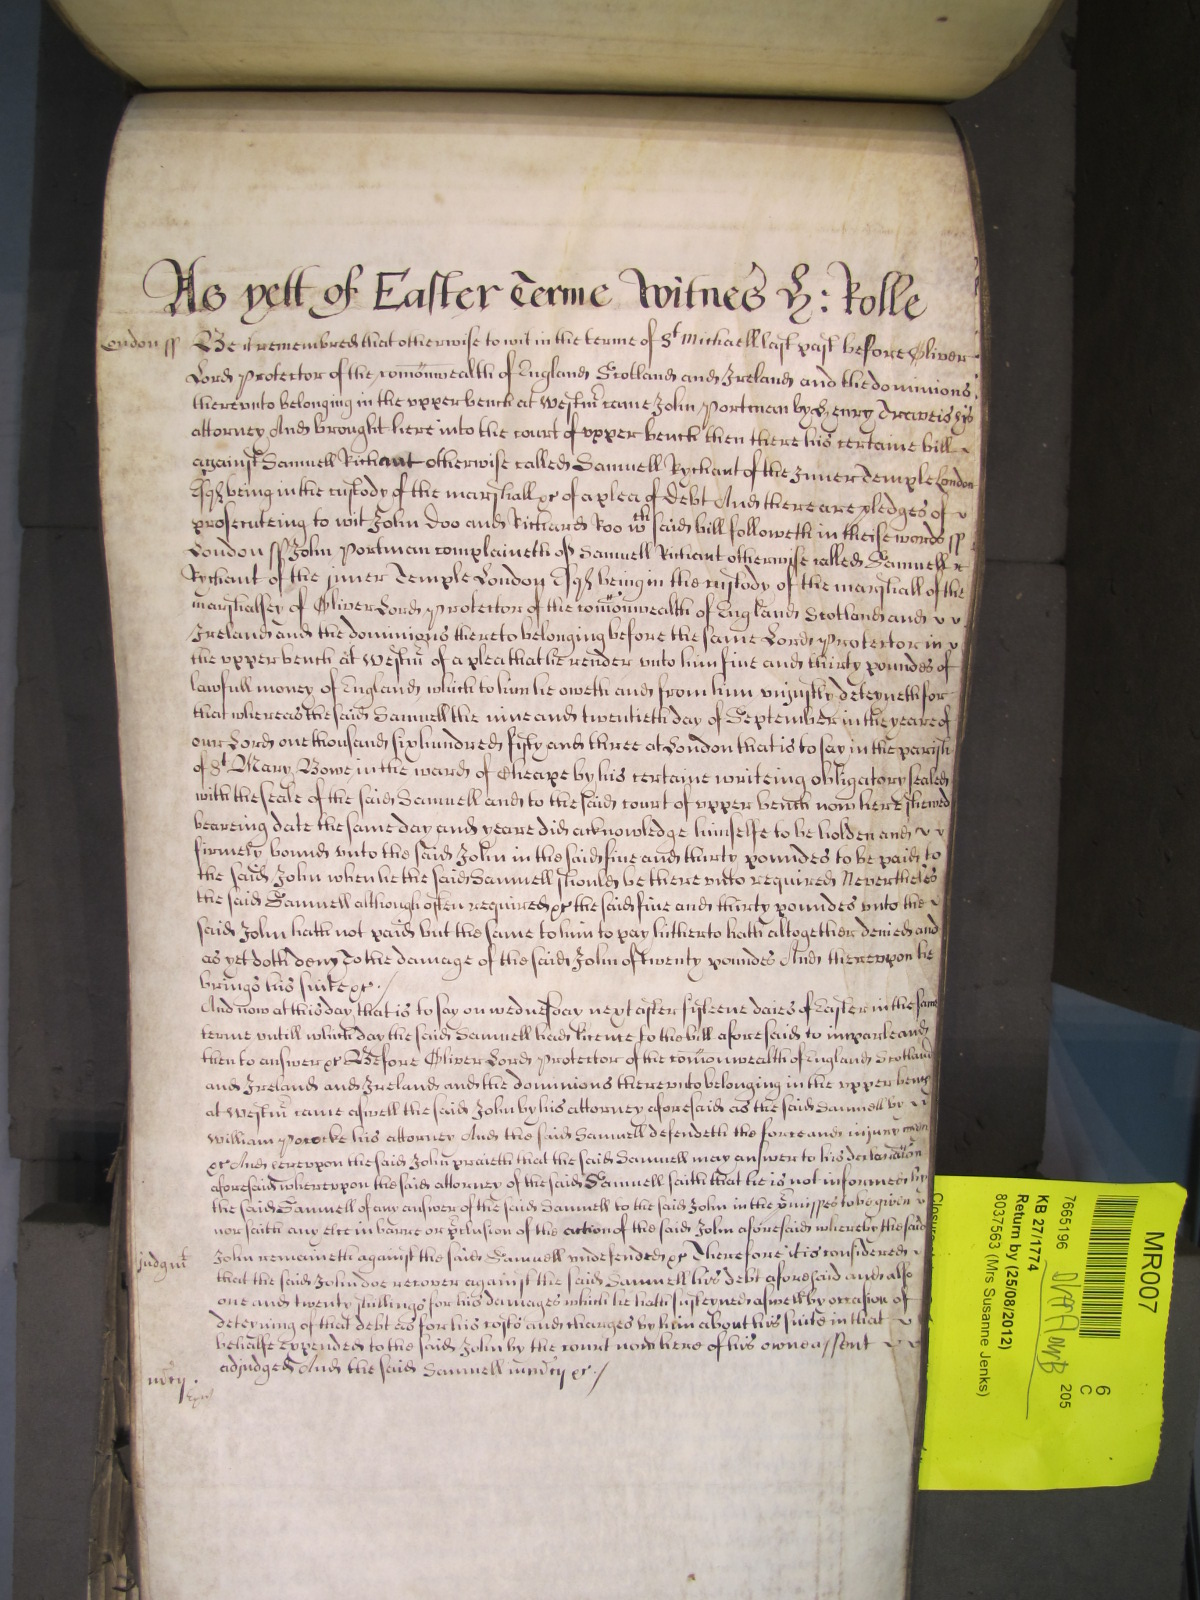 As yett of Easter Terme Witnes H: Rolle
London ss Be it remembred that otherwise to wit in the terme of St Michaell last past before Oliver
Lord Protector of the comonwealth of England Scotland and Ireland and the dominions
thereunto belonging in the upper bench at Westmr came John Portman by Henry Traveis his
attorney And brought here into the court of upper bench then there his certaine bill
against Samuell Richaut otherwise called Samuell Rychaut of the Inner Temple London
Esqr being in the custody of the marshall &c of a plea of debt And there are pledges of
prosecuteing to wit John Doo and Richard Roo wth said bill followeth in theise words ss
London ss John Portman complaineth of Samuell Richaut otherwise called Samuell
Rychaut of the Inner Temple London Esqr being in the custody of the marshall of the
marshalsey of Oliver Lord Protector of the comonwealth of England Scotland and
Ireland and the dominions thereto belonging before the same Lord Protector in
the upper bench at Westmr of a plea that he render unto him five and thirty poundes of
lawfull money of England which to him he oweth and from him unjustly deteyneth for
that whereas the said Samuell the nine and twentieth day of September in the yeare of
our Lord one thousand six hundred fifty and three at London that is to say in the parish
of St Mary Bowe in the ward of Cheape by his certaine writeing obligatory sealed
with the seale of the said Samuell and to the said court of upper bench now here shewed
beareing date the same day and yeare did acknowledge himselfe to be holden and
firmely bound unto the said John in the said five and thirty poundes to be paid to
the said John when he the said Samuell should be there unto required Neverthelės
the said Samuell although often required &c the said five and thirty poundes unto the
said John hath not paid but the same to him to pay hitherto hath altogether denied and
as yet doth deny To the damage of the said John of twenty poundes And thereupon he
brings his suite &c. /
And now at this day that is to say on wednesday next after fifteene daies of Easter in the same
terme untill which day the said Samuell had licence to the bill aforesaid to imparle and
then to answer &c Before Oliver Lord Protector of the comonwealth of England Scotland
and Ireland and Ireland and the dominions thereunto belonging in the upper bench
at Westmr came aswell the said John by his attorney aforesaid as the said Samuell by
William his attorney And the said Samuell defendeth the force and injury when
&c And hereupon the said John praieth that the said Samuell may answer to his declaracon
aforesaid whereupon the said attorney of the said Samuell saith that he is not informed by
the said Samuell of any answer of the said Samuell to the said John in the pmisses to be given
nor saith any else in barre or pclusion of the action of the said John aforesaid whereby the said
judgmt John remaineth against the said Samuell undefended &c Therefore it is considered
that the said John doe recover against the said Samuell his debt aforesaid and also
one and twenty shillings for his damages which he hath susteyned aswell by occasion of
deteyning of that debt as for his costs and charges by him about his suite in that
behalfe expended to the said John by the court now here of his owne assent
adjudged And the said Samuell in mrcy &c. /
mrcy.
MR007
6
C
205
7665196
KB 27/1774
Return by (25/08/2012)
8037563 (Mrs Susanne Jenks)